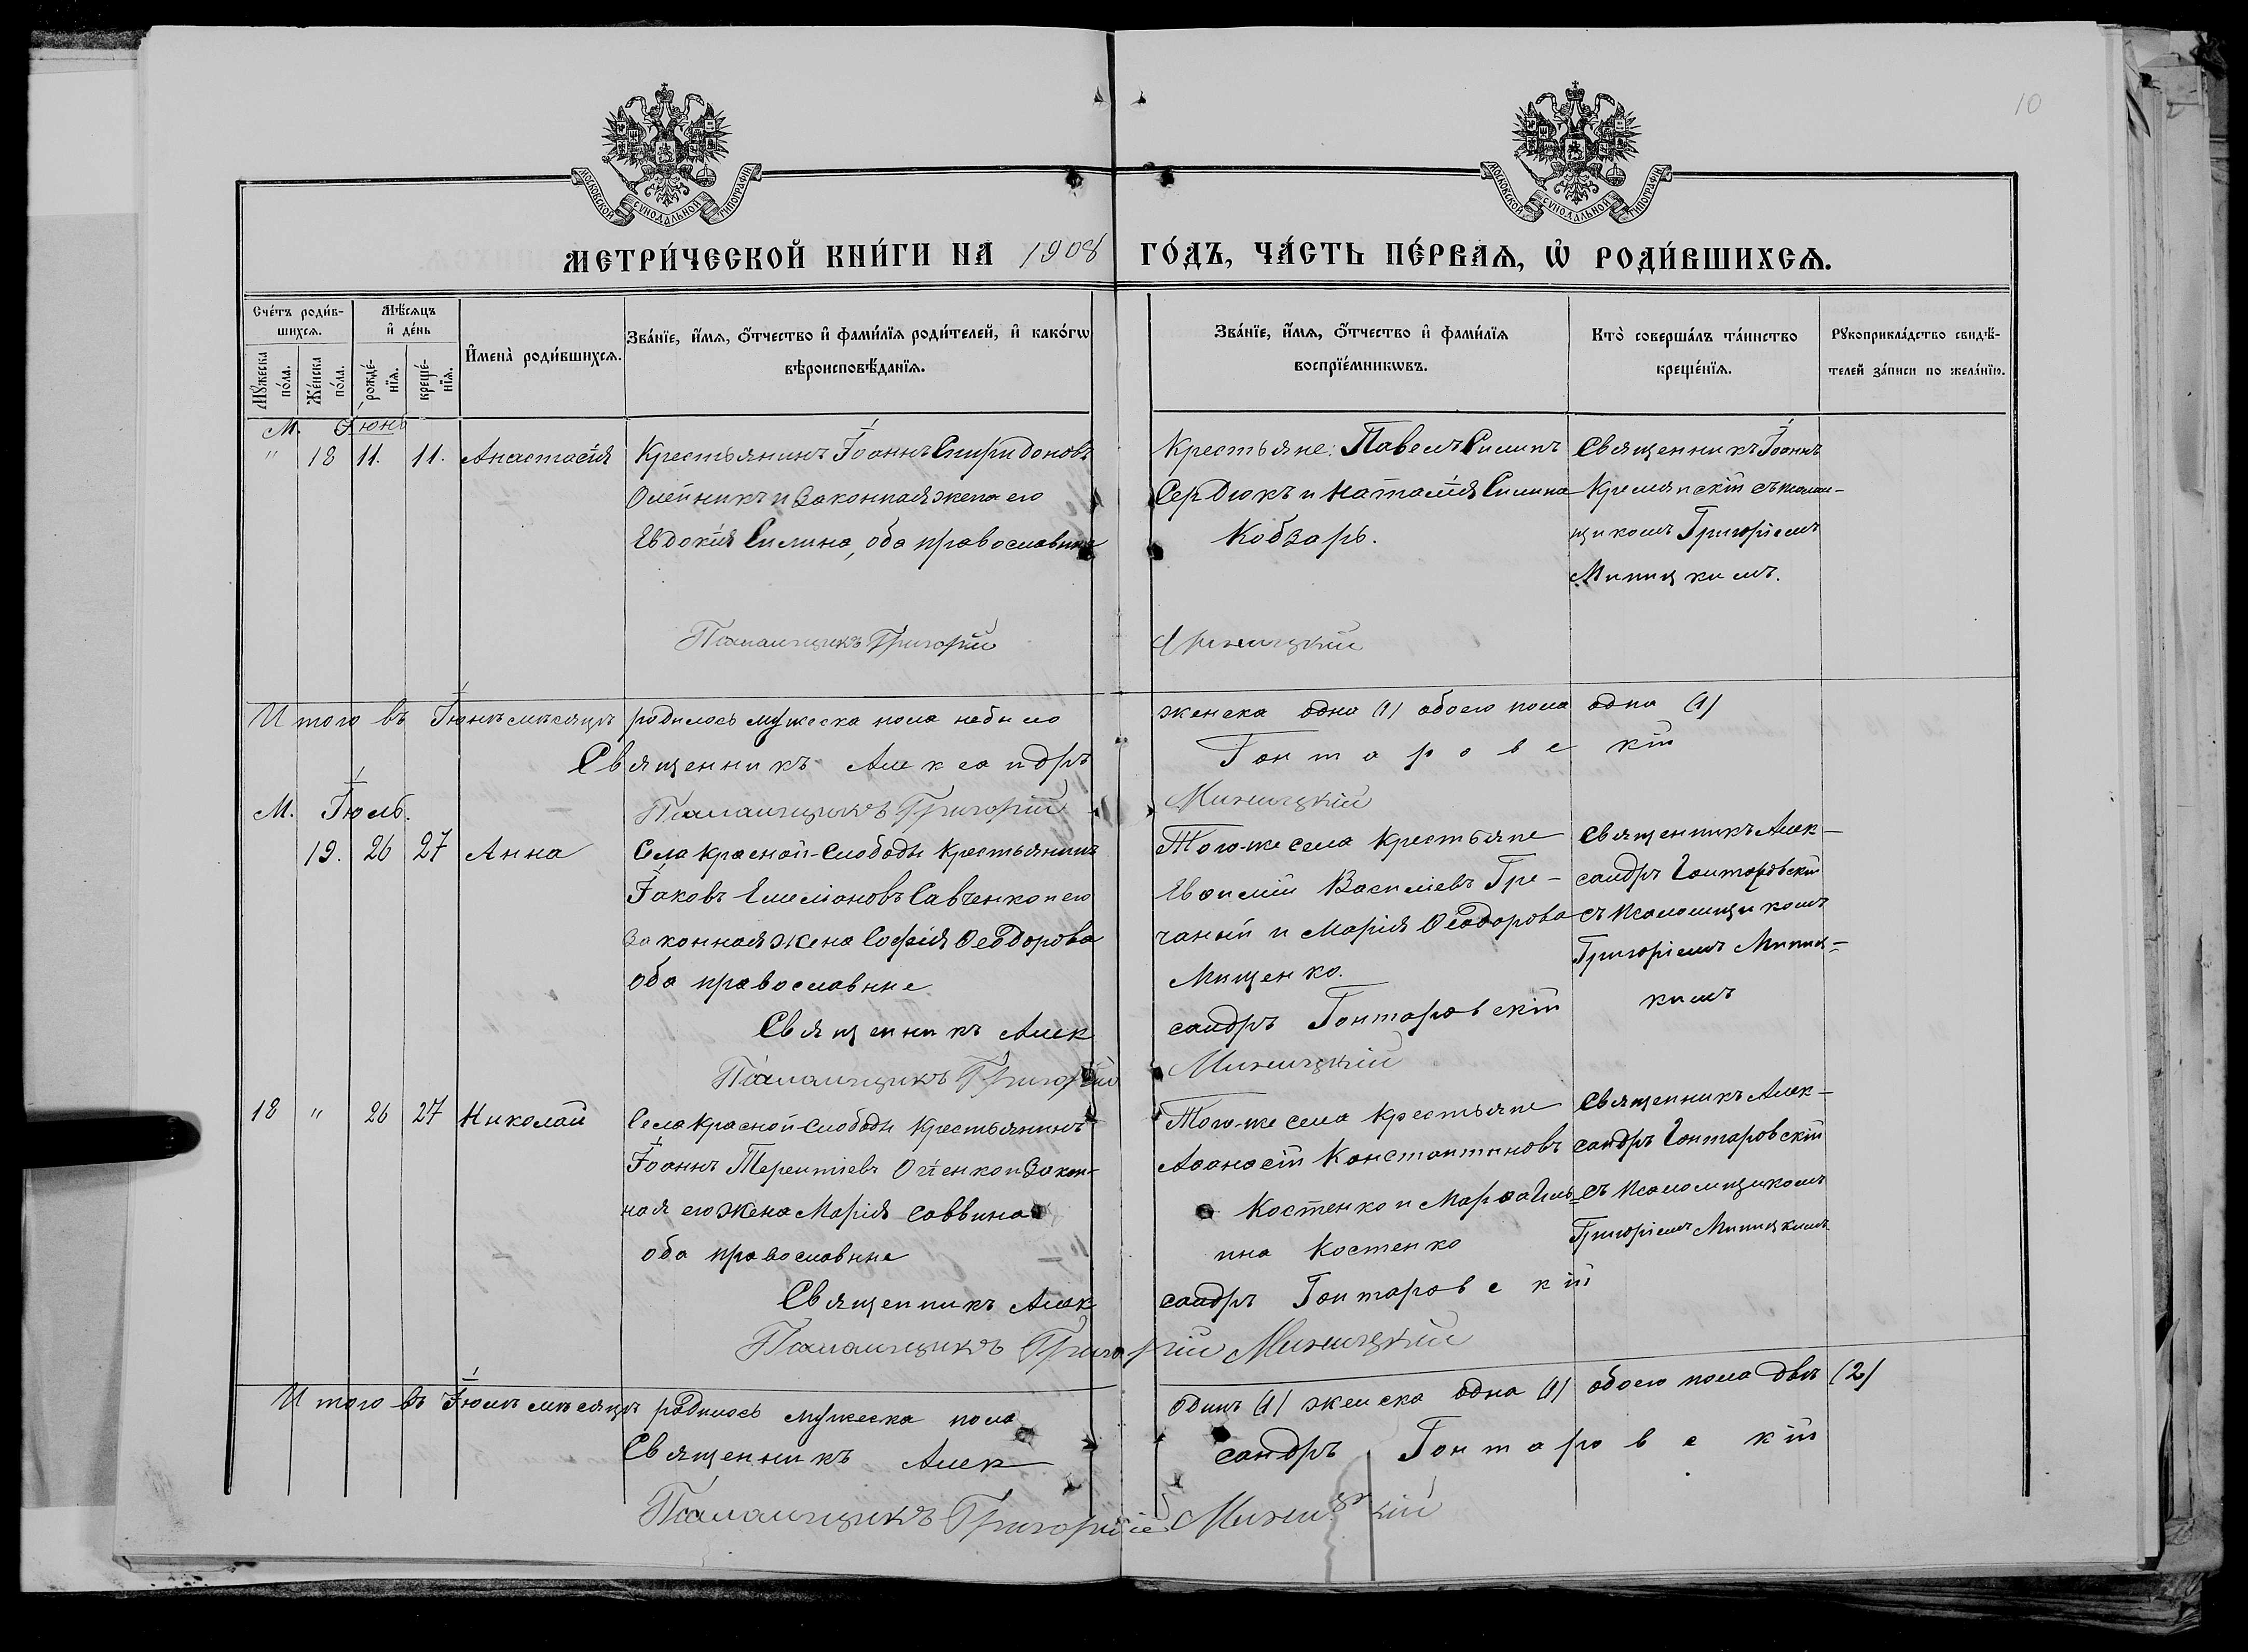 10
МОСКОВСКОЙ СѴНОДАЛЬНОЙ ТИПОГРАФІИ
МОСКОВСКОЙ СѴНОДАЛЬНОЙ ТИПОГРАФІИ
МЕТРИ́ЧЕСКОЙ КНИ́ГИ НА 1908 ГО́ДЪ, ЧА́СТЬ ПЕ́РВАѦ, Ѡ҆ РОДИ́ВШИХСѦ.
Сче́тъ роди́в-
шихсѧ.
Мꙋ́жеска по́ла.
Же́нска по́ла.
Мѣ́сѧцъ
и҆ де́нь
рожде́-
нїѧ.
креще́-
нїѧ.
И҆мена̀ роди́вшихсѧ.
Зва́нїе, и҆́мѧ, ѻ҆́тчество и҆ фами́лїѧ роди́телей, и҆ како́гѡ
вѣроисповѣ́данїѧ.
Зва́нїе, и҆́мѧ, ѻ҆́тчество и҆ фами́лїѧ
воспрїе́мникѡвъ.
Кто̀ соверша́лъ та́инство
креще́нїѧ.
Рꙋкоприкла́дство свидѣ́-
телей за́писи по жела́нїю.
М. Іюнь
" 18 11. 11. Анастасія
Крестьянинъ Іоаннъ Спиридоновъ
Олейникъ и законная жена его
Евдокія Силина, оба православные
Крестьяне: Павелъ Силинъ
Сердюкъ и Наталія Силина
Кобзарь.
Священникъ Іоаннъ
Кремянскій съ псалом-
щикомъ Григоріемъ
Миницкимъ.
Псаломщикъ Григорій Миницкій
Итого въ Іюнѣ мѣсяцѣ родилось мужеска пола небыло женска одна (1) обоего пола одна (1)
Священникъ Александръ Гонтаровскій
Псаломщикъ Григорій Миницкій
М. Іюль.
19. 26 27 Анна
Села Красной-Слободы крестьянинъ
Іаковъ Емеліановъ Савченко и его
законная жена Софія Ѳеодорова
оба православные
Того-же села крестьяне
Евѳимій Василіевъ Гре-
чаный и Марія Ѳеодорова
Мищенко.
Священникъ Алек-
сандръ Гонтаровскій
съ псаломщикомъ
Григоріемъ Миниц-
кимъ
Священникъ Александръ Гонтаровскій
Псаломщикъ Григорій Миницкій
18 " 26 27 Николай
Села Красной-Слободы крестьянинъ
Іоаннъ Терентіевъ и закон-
ная его жена Марія Саввина
оба православные
Того-же села крестьяне
Аѳанасій Константиновъ
Костенко и Марѳа Иль-
ина Костенко
Священникъ Алек-
сандръ Гонтаровскій
съ псаломщикомъ
Григоріемъ Миницкимъ
Священникъ Александръ Гонтаровскій
Псаломщикъ Григорій Миницкій
Итого въ Іюлѣ мѣсяцѣ родилось мужеска пола одинъ (1) женска одна (1) обоего пола двѣ (2)
Священникъ Александръ Гонтаровскій
Псаломщикъ Григорій Миницкій